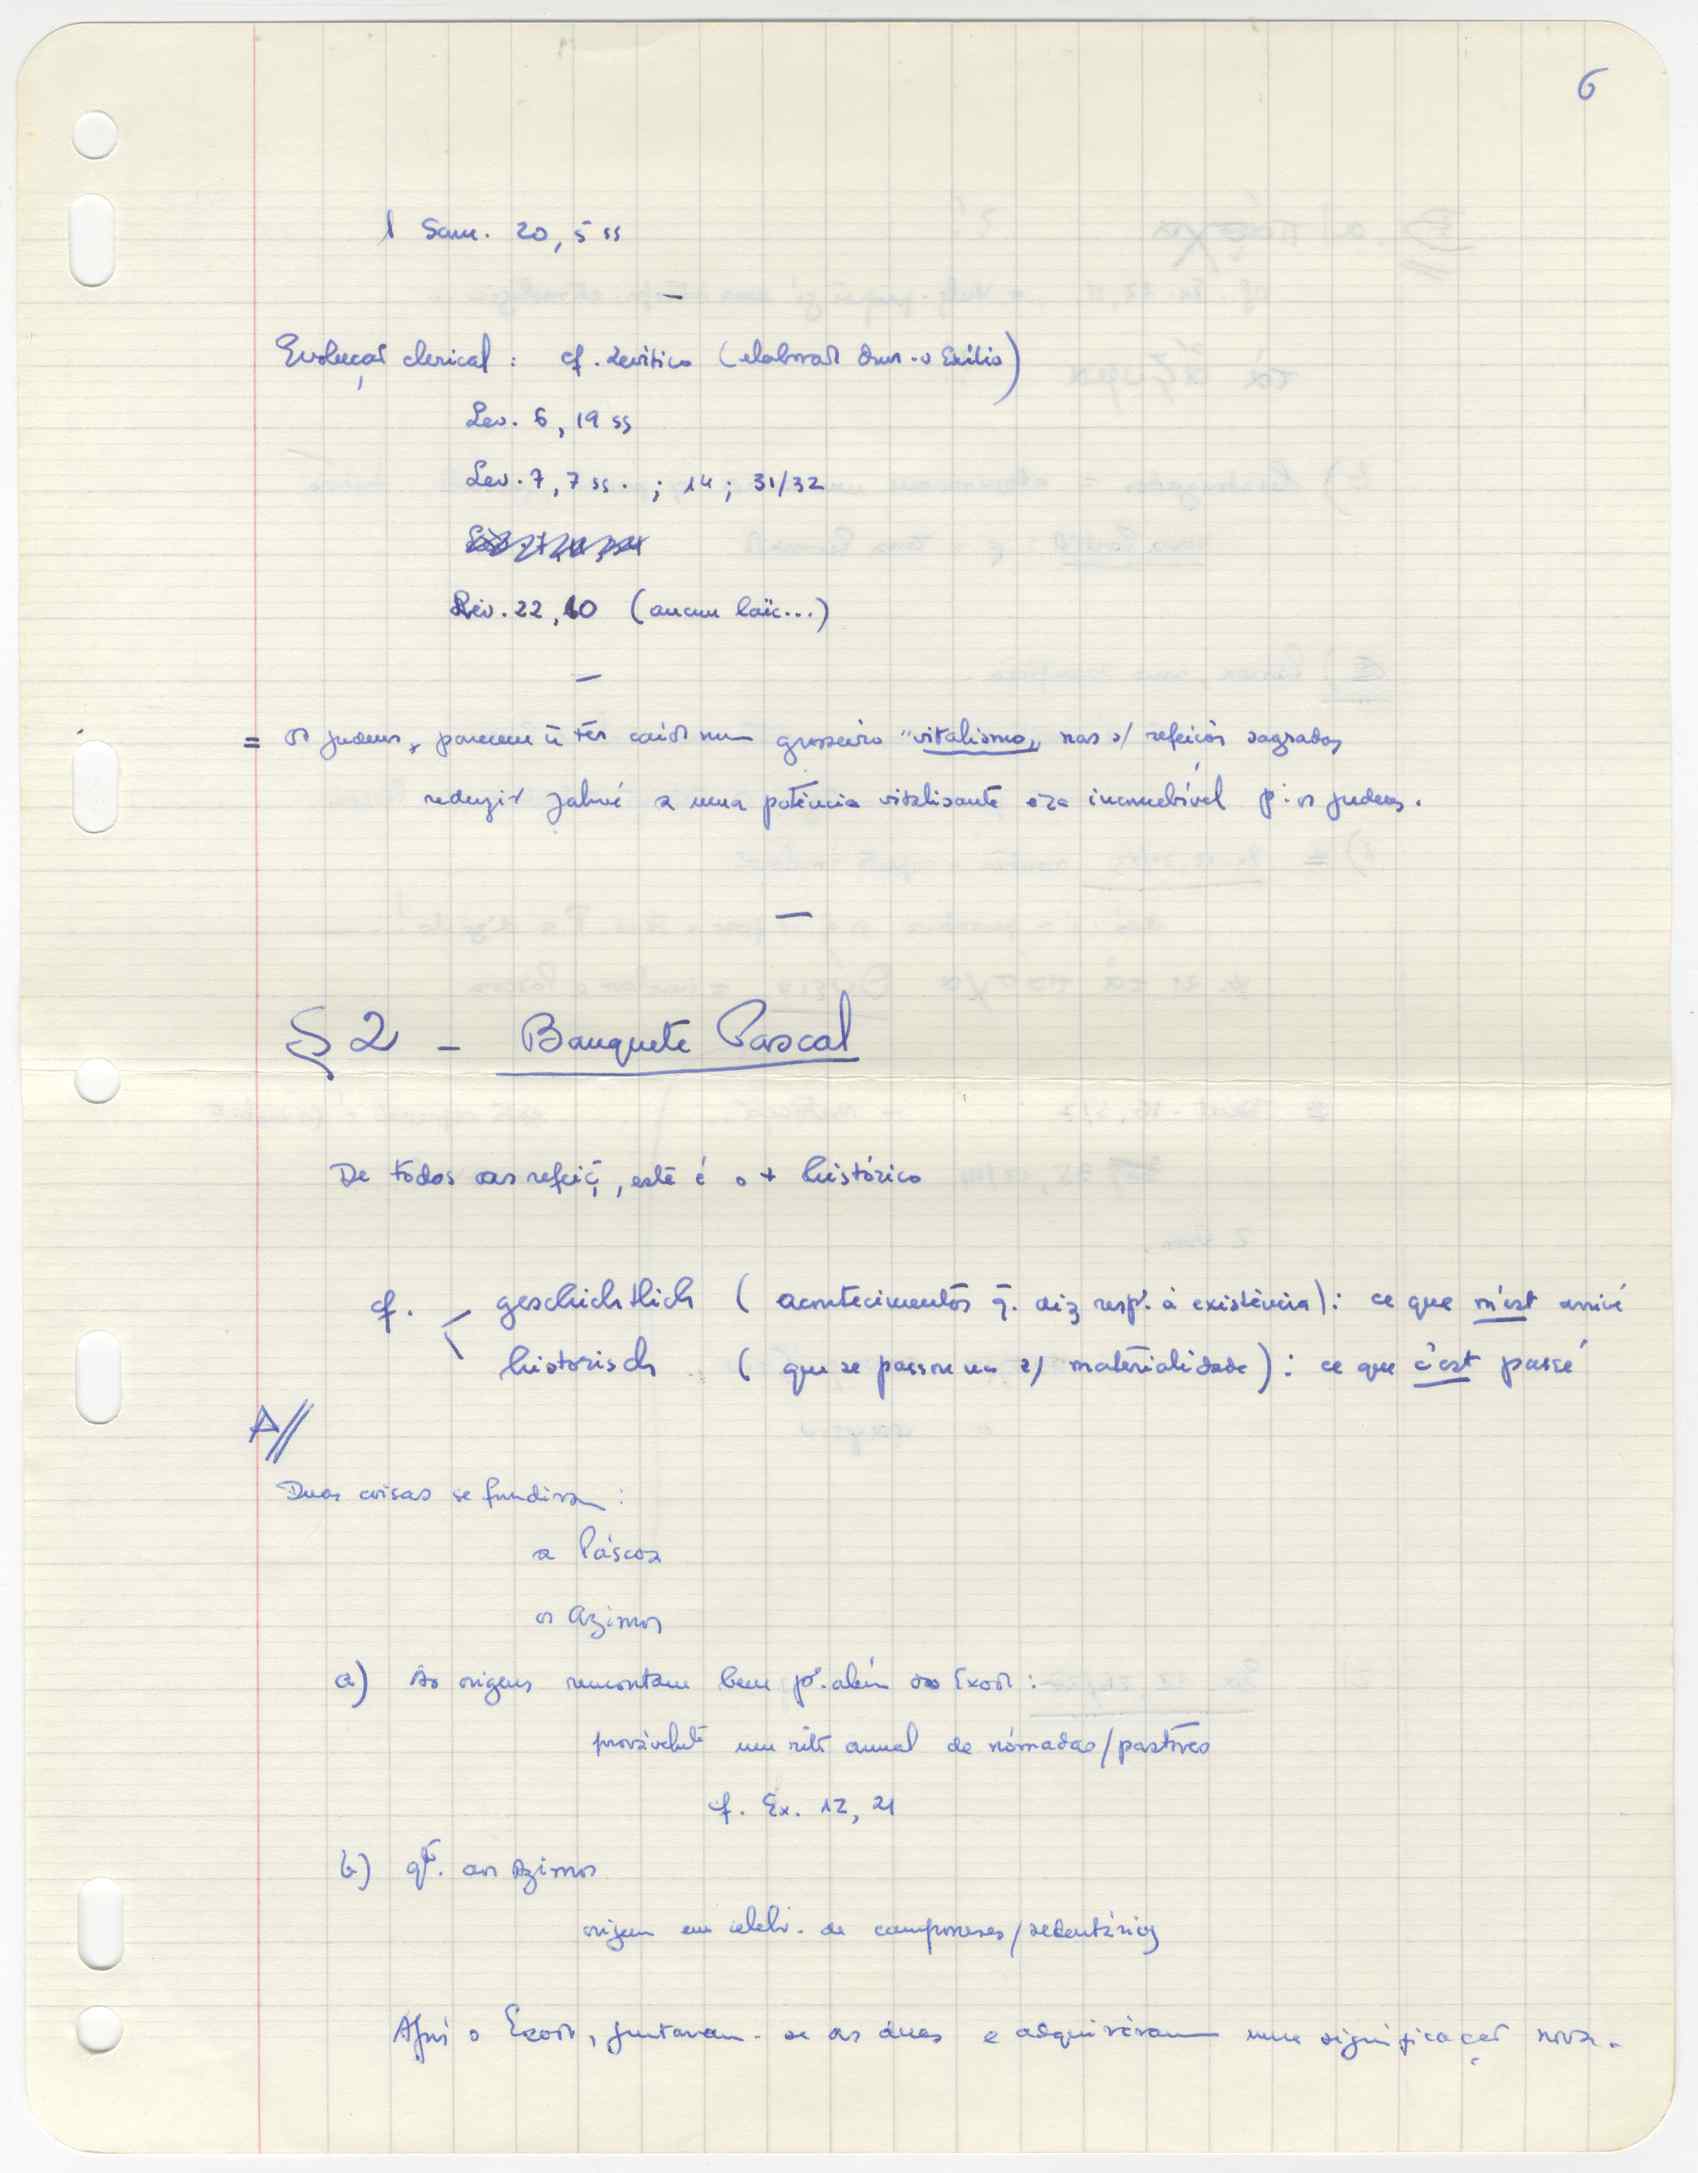 6
1 Sam. 20, 5 ss
—
Evolução clerical : cf. Levítico (elaborado dur. o Exílio)
Lev. 6, 19 ss
Lev. 7, 7 ss. ; 14 ; 31/32
Lev. 22, 10 (aucun laïc...)
—
= os judeus, parecem ñ ter caído num grosseiro "vitalismo" nas s/ refeições sagradas
reduzir Jahvé a uma potência vitalisante era inconcebível p. os judeus.
—
§ 2 - Banquete Pascal
De todos as refeiç, este é o + histórico
cf. geschichtlich ( acontecimentos q. diz resp. à existência) : ce que m'est arrivé
historisch ( que se passou na s/ materialidade) : ce que s'est passé
A//
Duas coisas se fundiram :
a Páscoa
os Azimos
a) As origens remontam bem p. além do Exodo :
provàvelte um rito anual de nómadas/pastores
cf. Ex. 12, 21
b) qto. aos Azimos
origem em celebr. de camponeses/sedentários
Após o Exodo, juntaram-se as duas e adquiriram uma significação nova.